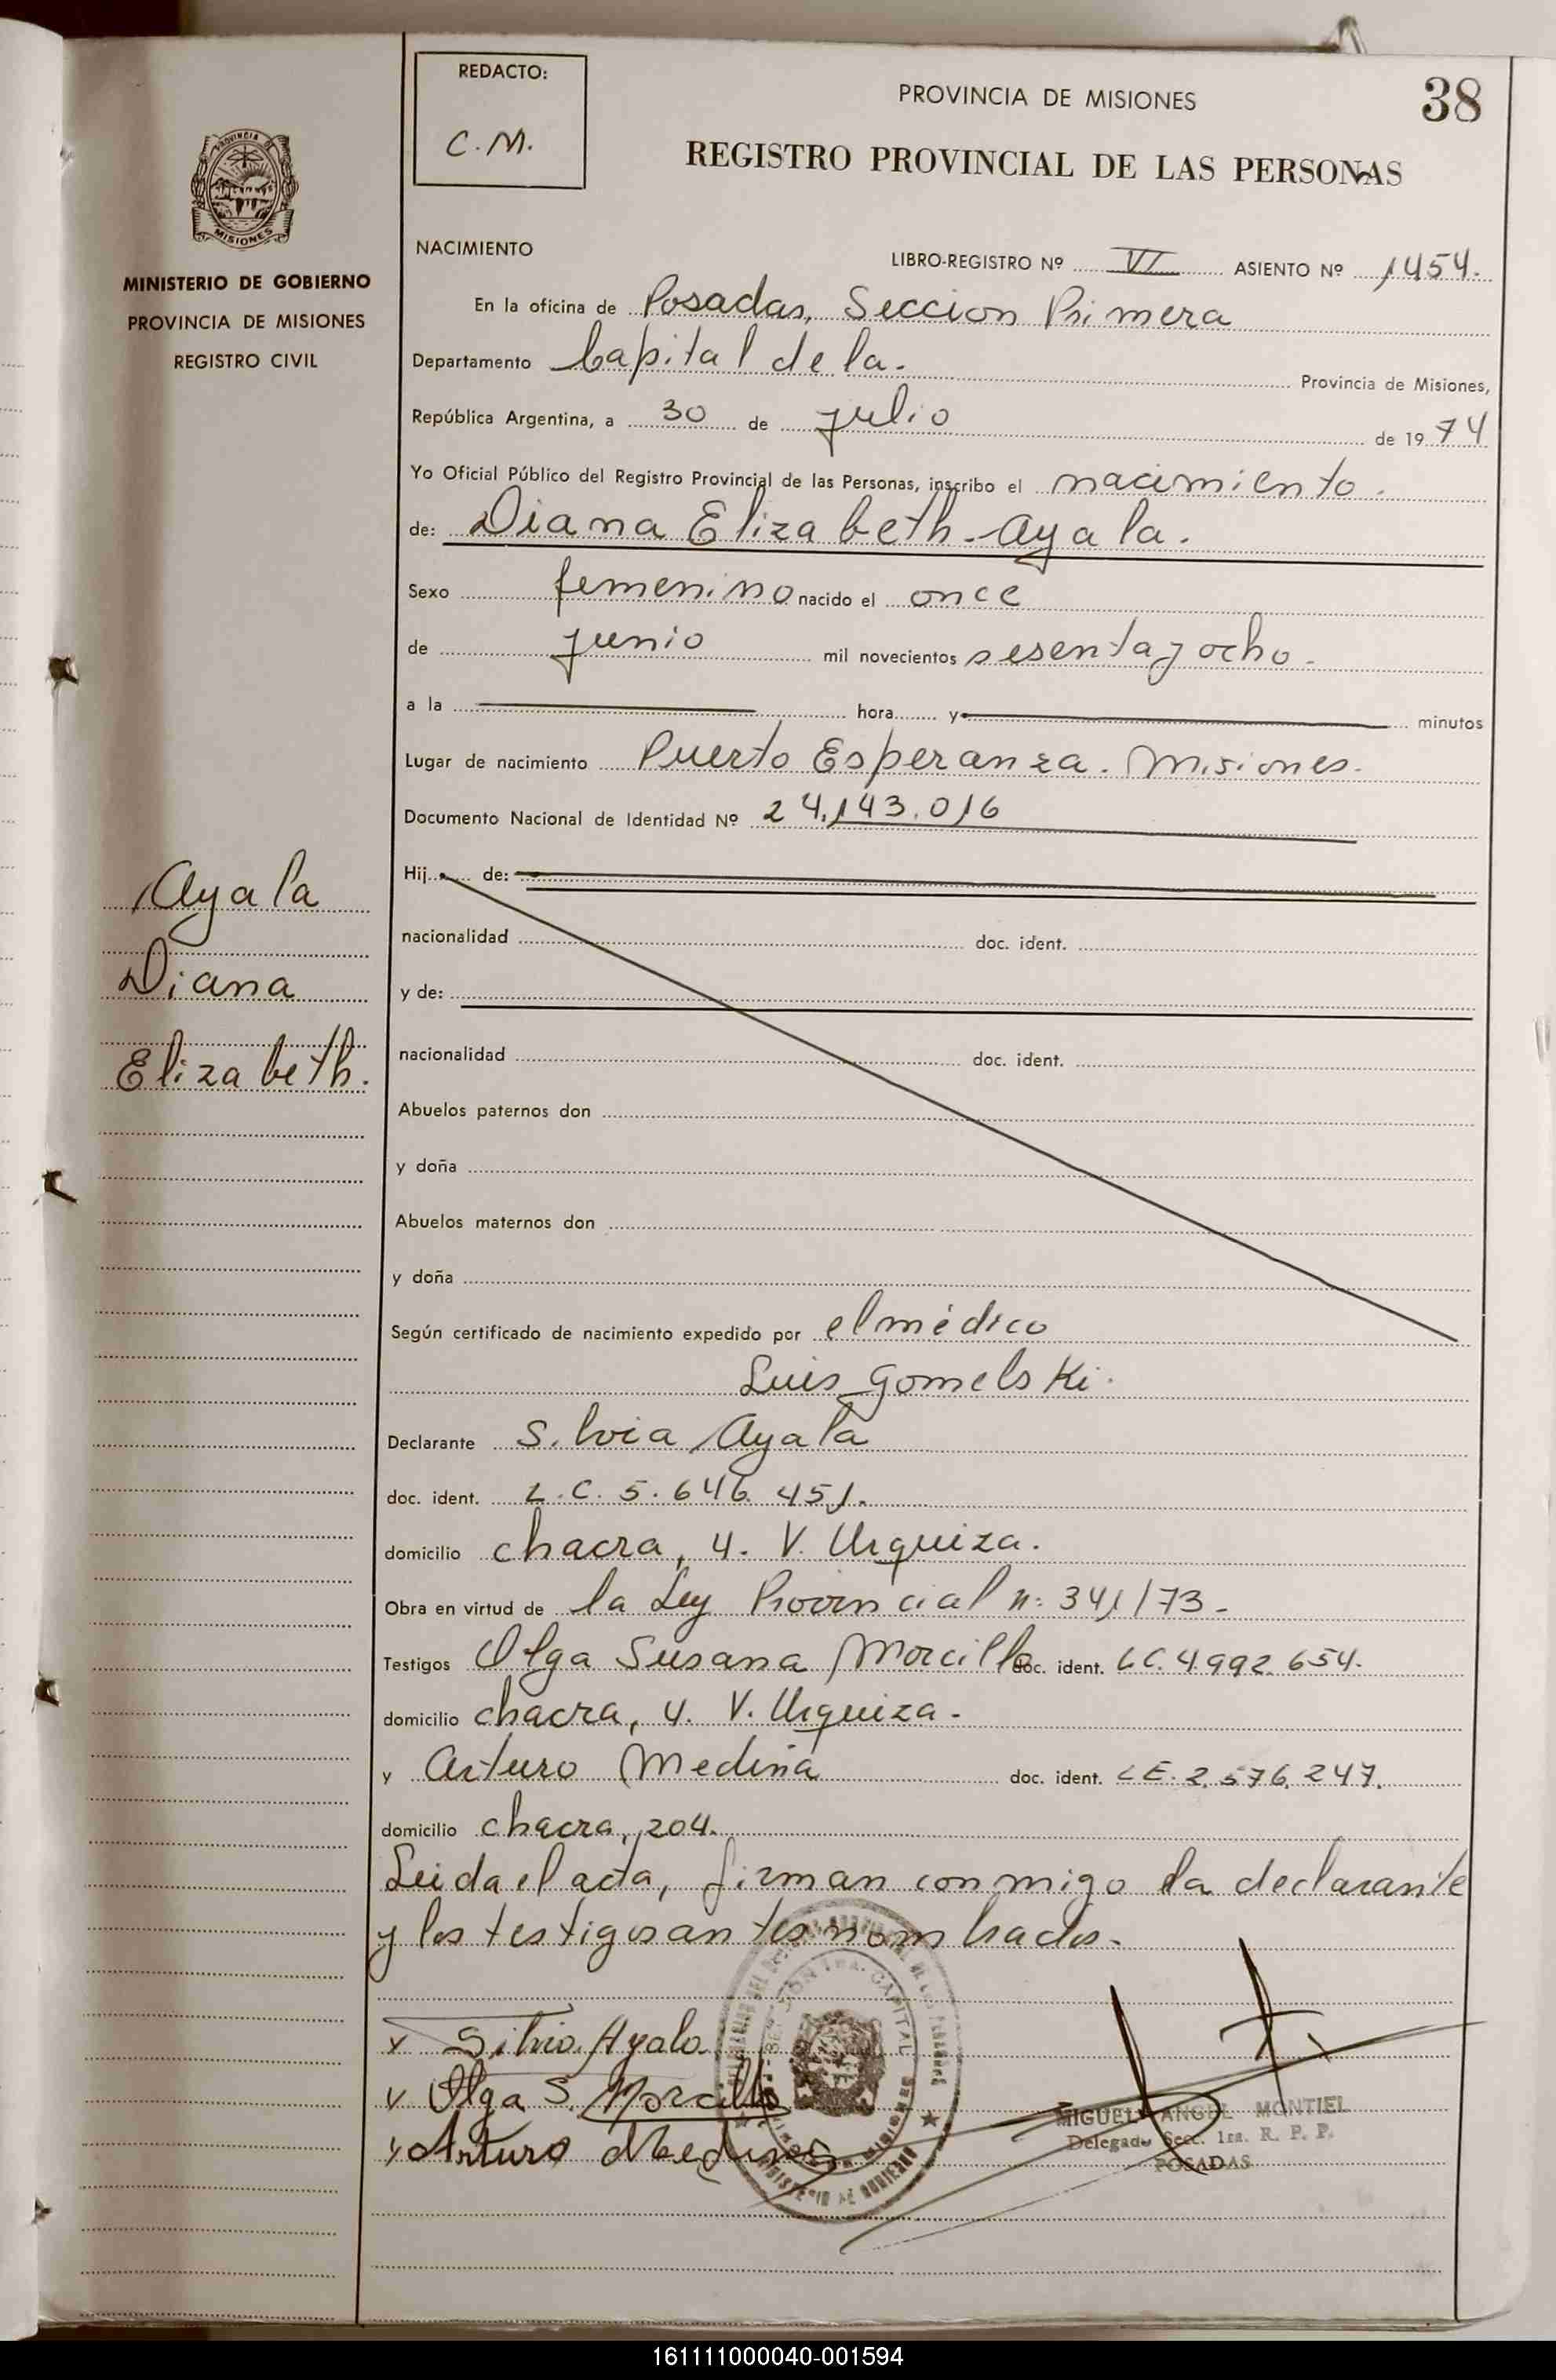 REDACTO:
C.M.
PROVINCIA DE MISIONES
38
REGISTRO PROVINCIAL DE LAS PERSONAS
PROVINCIA DE
MISIONES
MINISTERIO DE GOBIERNO
PROVINCIA DE MISIONES
REGISTRO CIVIL
NACIMIENTO
LIBRO-REGISTRO Nº VI ASIENTO Nº 1454.
En la oficina de Posadas, Seccion Primera
Departamento Capital de la. Provincia de Misiones,
República Argentina, a 30 de julio de 1974
Yo Oficial Público del Registro Provincial de las Personas, inscribo el nacimiento.
de: Diana Elizabeth-Ayala.
Sexo femenino nacido el once
de junio mil novecientos sesenta y ocho.
a la hora y minutos
Lugar de nacimiento Puerto Esperanza. Misiones.
Documento Nacional de Identidad Nº 24.143.016
Hij de:
nacionalidad doc. ident.
y de:
nacionalidad doc. ident.
Abuelos paternos don
y doña
Abuelos maternos don
y doña
Ayala
Diana
Elizabeth.
Según certificado de nacimiento expedido por el médico
Luis Gomelski.
Declarante Silvia Ayala
doc. ident. L.C. 5.646.451.
domicilio chacra, 4. V. Urquiza.
Obra en virtud de la Ley Provincial n: 341/73-
Testigos Olga Susana Morcillo doc. ident. LC. 4992.654.
domicilio chacra, 4. V. Urquiza-
y Arturo Medina doc. ident. LE. 2.576.247.
domicilio chacra, 204.
Leida el acta, firman conmigo la declarante
y los testigos antes nombrados.
x Silvia Ayala
x Olga S. Morcillo
x Arturo Medina
CAPITAL
MINISTERIO DE GOBIERNO
MIGUEL ANGEL MONTIEL
Delegado Secc. 1ra. R. P. P.
POSADAS
161111000040-001594